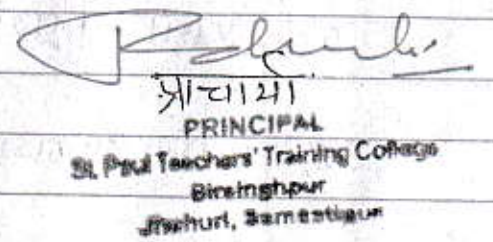 प्राचार्या
PRINCIPAL
St. Paul Teachers' Training College
Birsinghpur
Jitwaria, Samastipur